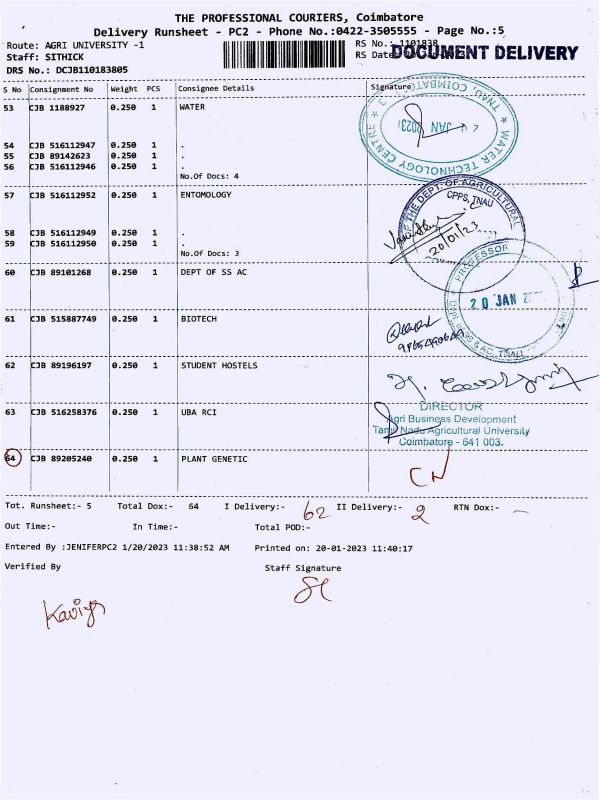 THE PROFESSIONAL COURIERS, Coimbatore
Delivery Runsheet - PC2 - Phone No.:0422-3505555 - Page No.:5
Route: AGRI UNIVERSITY -1
RS No.: 1101838
DOCUMENT DELIVERY
Staff: SITHICK
RS Date
DRS No.: DCJB110183805
S No Consignment No Weight PCS Consignee Details Signature
53 CJB 1188927 0.250 1 WATER
54 CJB 516112947 0.250 1 .
55 CJB 89142623 0.250 1 .
56 CJB 516112946 0.250 1 .
No.Of Docs: 4
WATER TECHNOLOGY CENTRE
TNAU, COIMBAT
JAN 2023
57 CJB 516112952 0.250 1 ENTOMOLOGY
58 CJB 516112949 0.250 1 .
59 CJB 516112950 0.250 1 .
No.Of Docs: 3
THE DEPT. OF AGRICULTURAL
CPPS, TNAU
20/01/23
60 CJB 89101268 0.250 1 DEPT OF SS AC
PROFESSOR
20 JAN
61 CJB 515887749 0.250 1 BIOTECH
62 CJB 89196197 0.250 1 STUDENT HOSTELS
63 CJB 516258376 0.250 1 UBA RCI
DIRECTOR
Agri Business Development
Tamil Nadu Agricultural University
Coimbatore - 641 003.
64 CJB 89205240 0.250 1 PLANT GENETIC
CN
Tot. Runsheet:- 5 Total Dox:- 64 I Delivery:- 62 II Delivery:- 2 RTN Dox:- –
Out Time:- In Time:- Total POD:-
Entered By :JENIFERPC2 1/20/2023 11:38:52 AM Printed on: 20-01-2023 11:40:17
Verified By Staff Signature
Kaviya